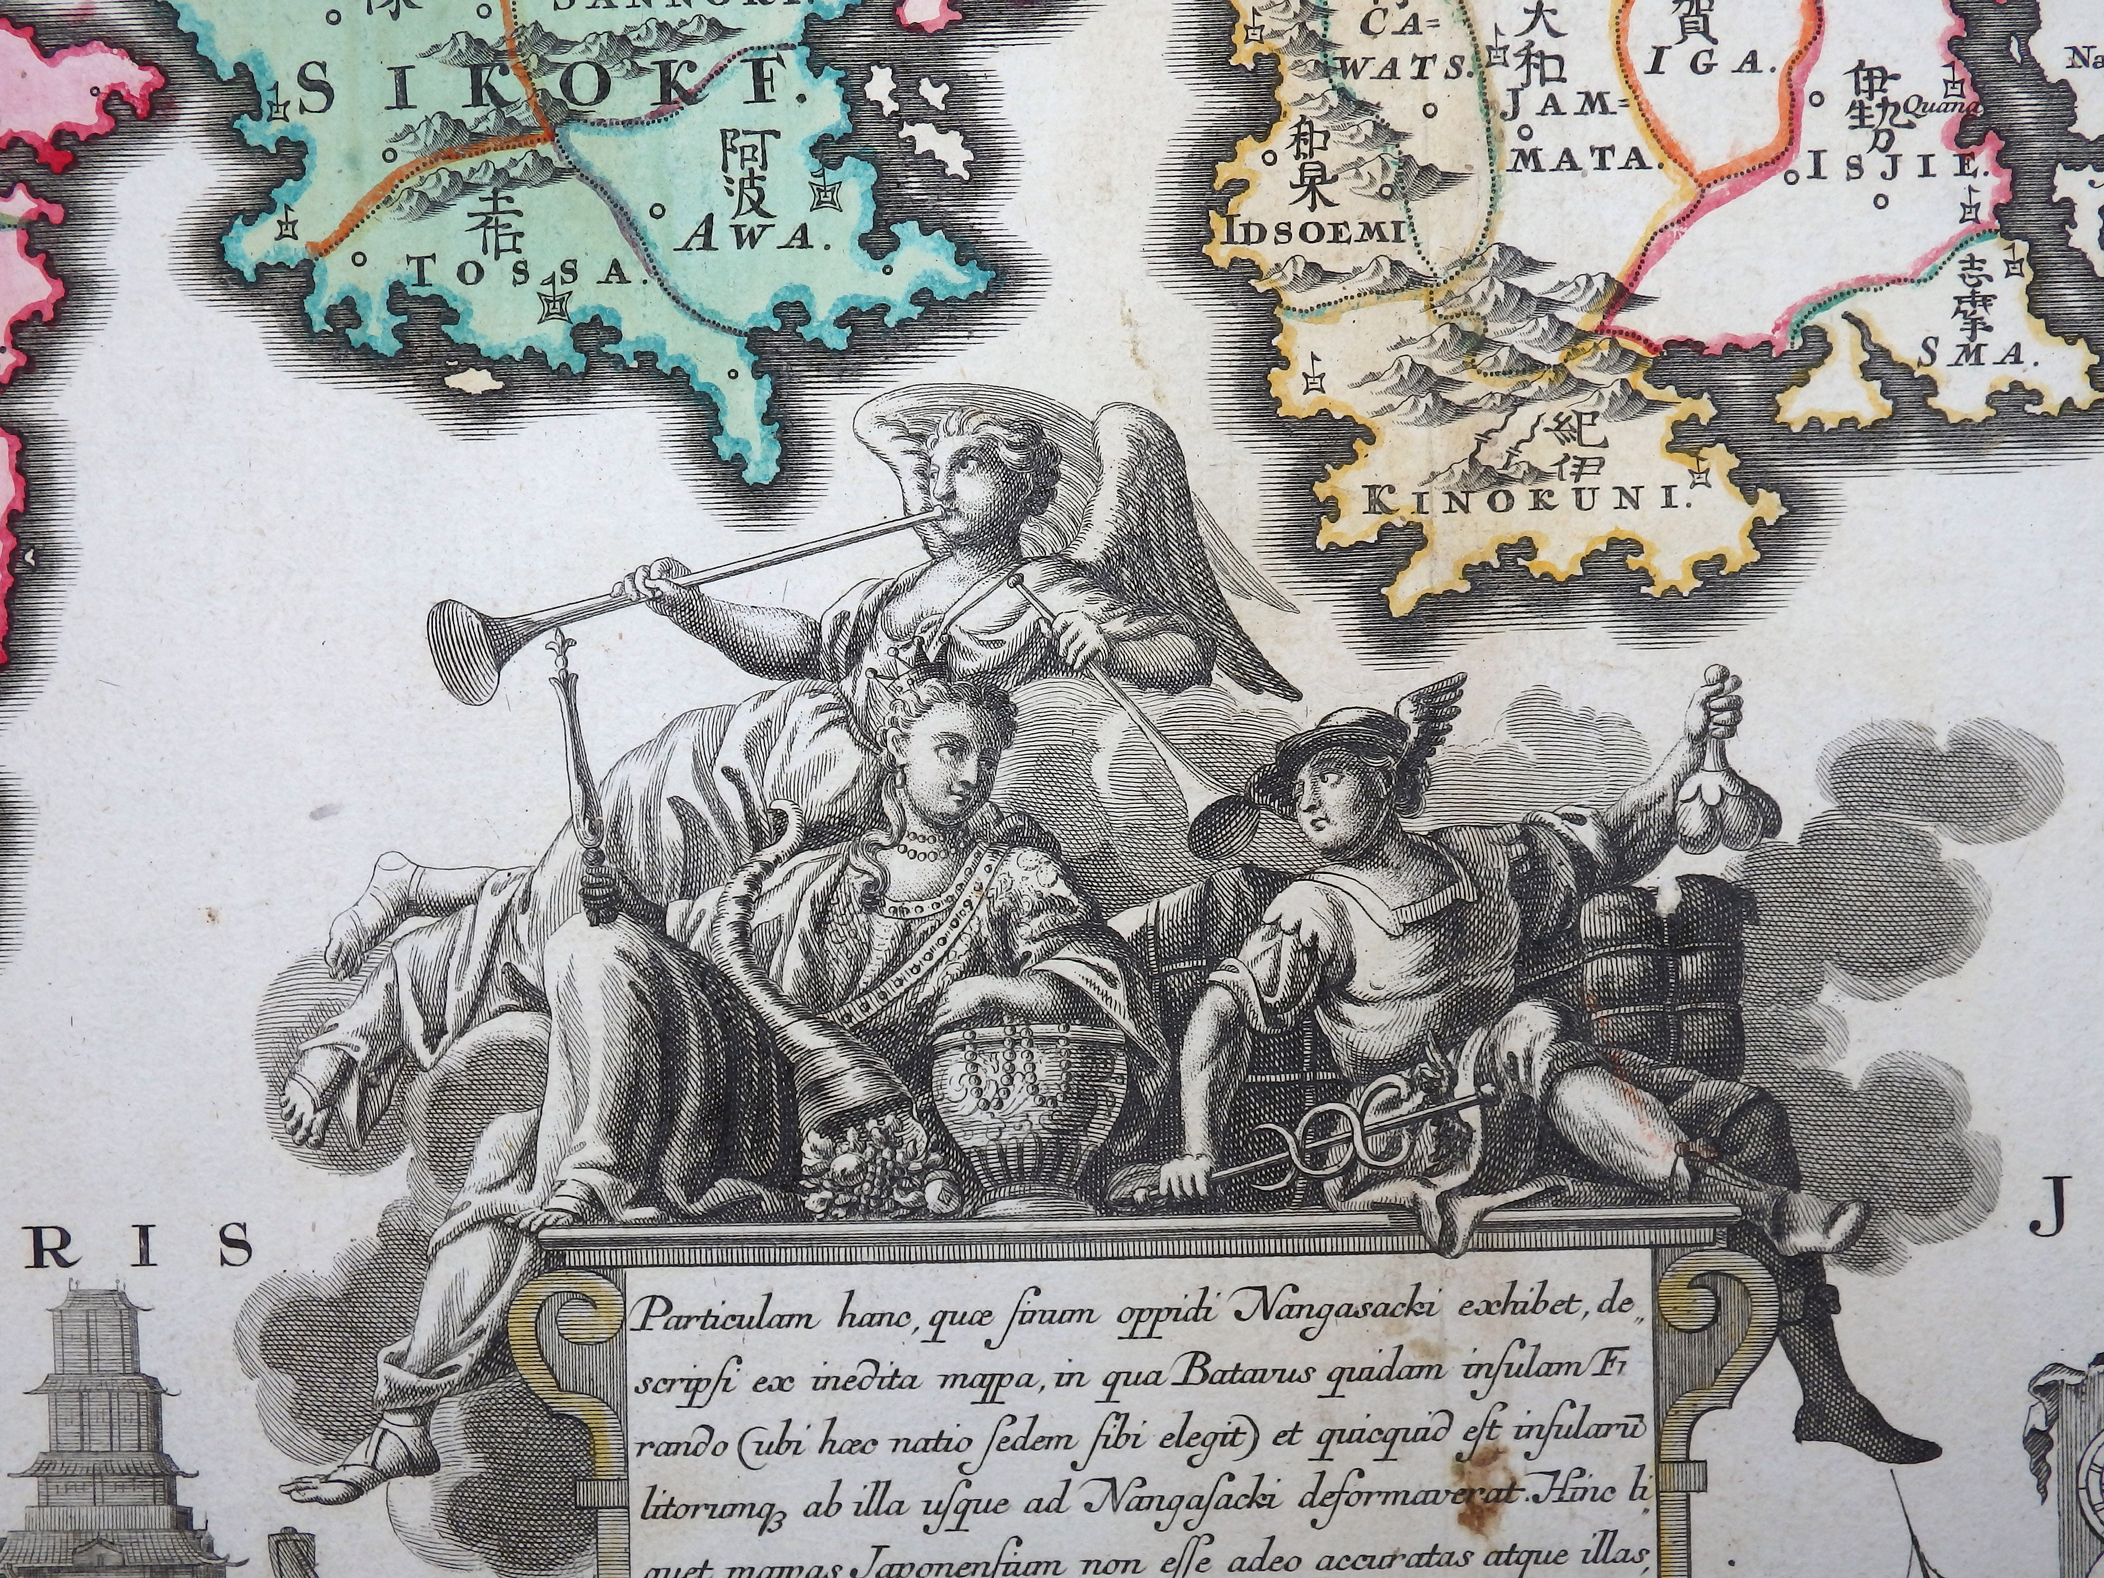 SANNOKI.
SIKOKF.
阿波
AWA.
TOSSA.
CA=
WATS.
大和
JAM=
MATA.
賀
IGA.
伊勢
Quana
ISJIE.
Na
和泉
IDSOEMI
志摩
SMA.
紀伊
KINOKUNI.
RIS
J
Particulam hanc, quæ sinum oppidi Nangasacki exhibet, de„
scripsi ex inedita mappa, in qua Batavus quidam insulam Fi
rando (ubi hæc natio sedem sibi elegit) et quicquid est insularū
litorumqꝫ ab illa usque ad Nangasacki deformaverat. Hinc li„
quet mappas Japonensium non esse adeo accuratas atque illas,